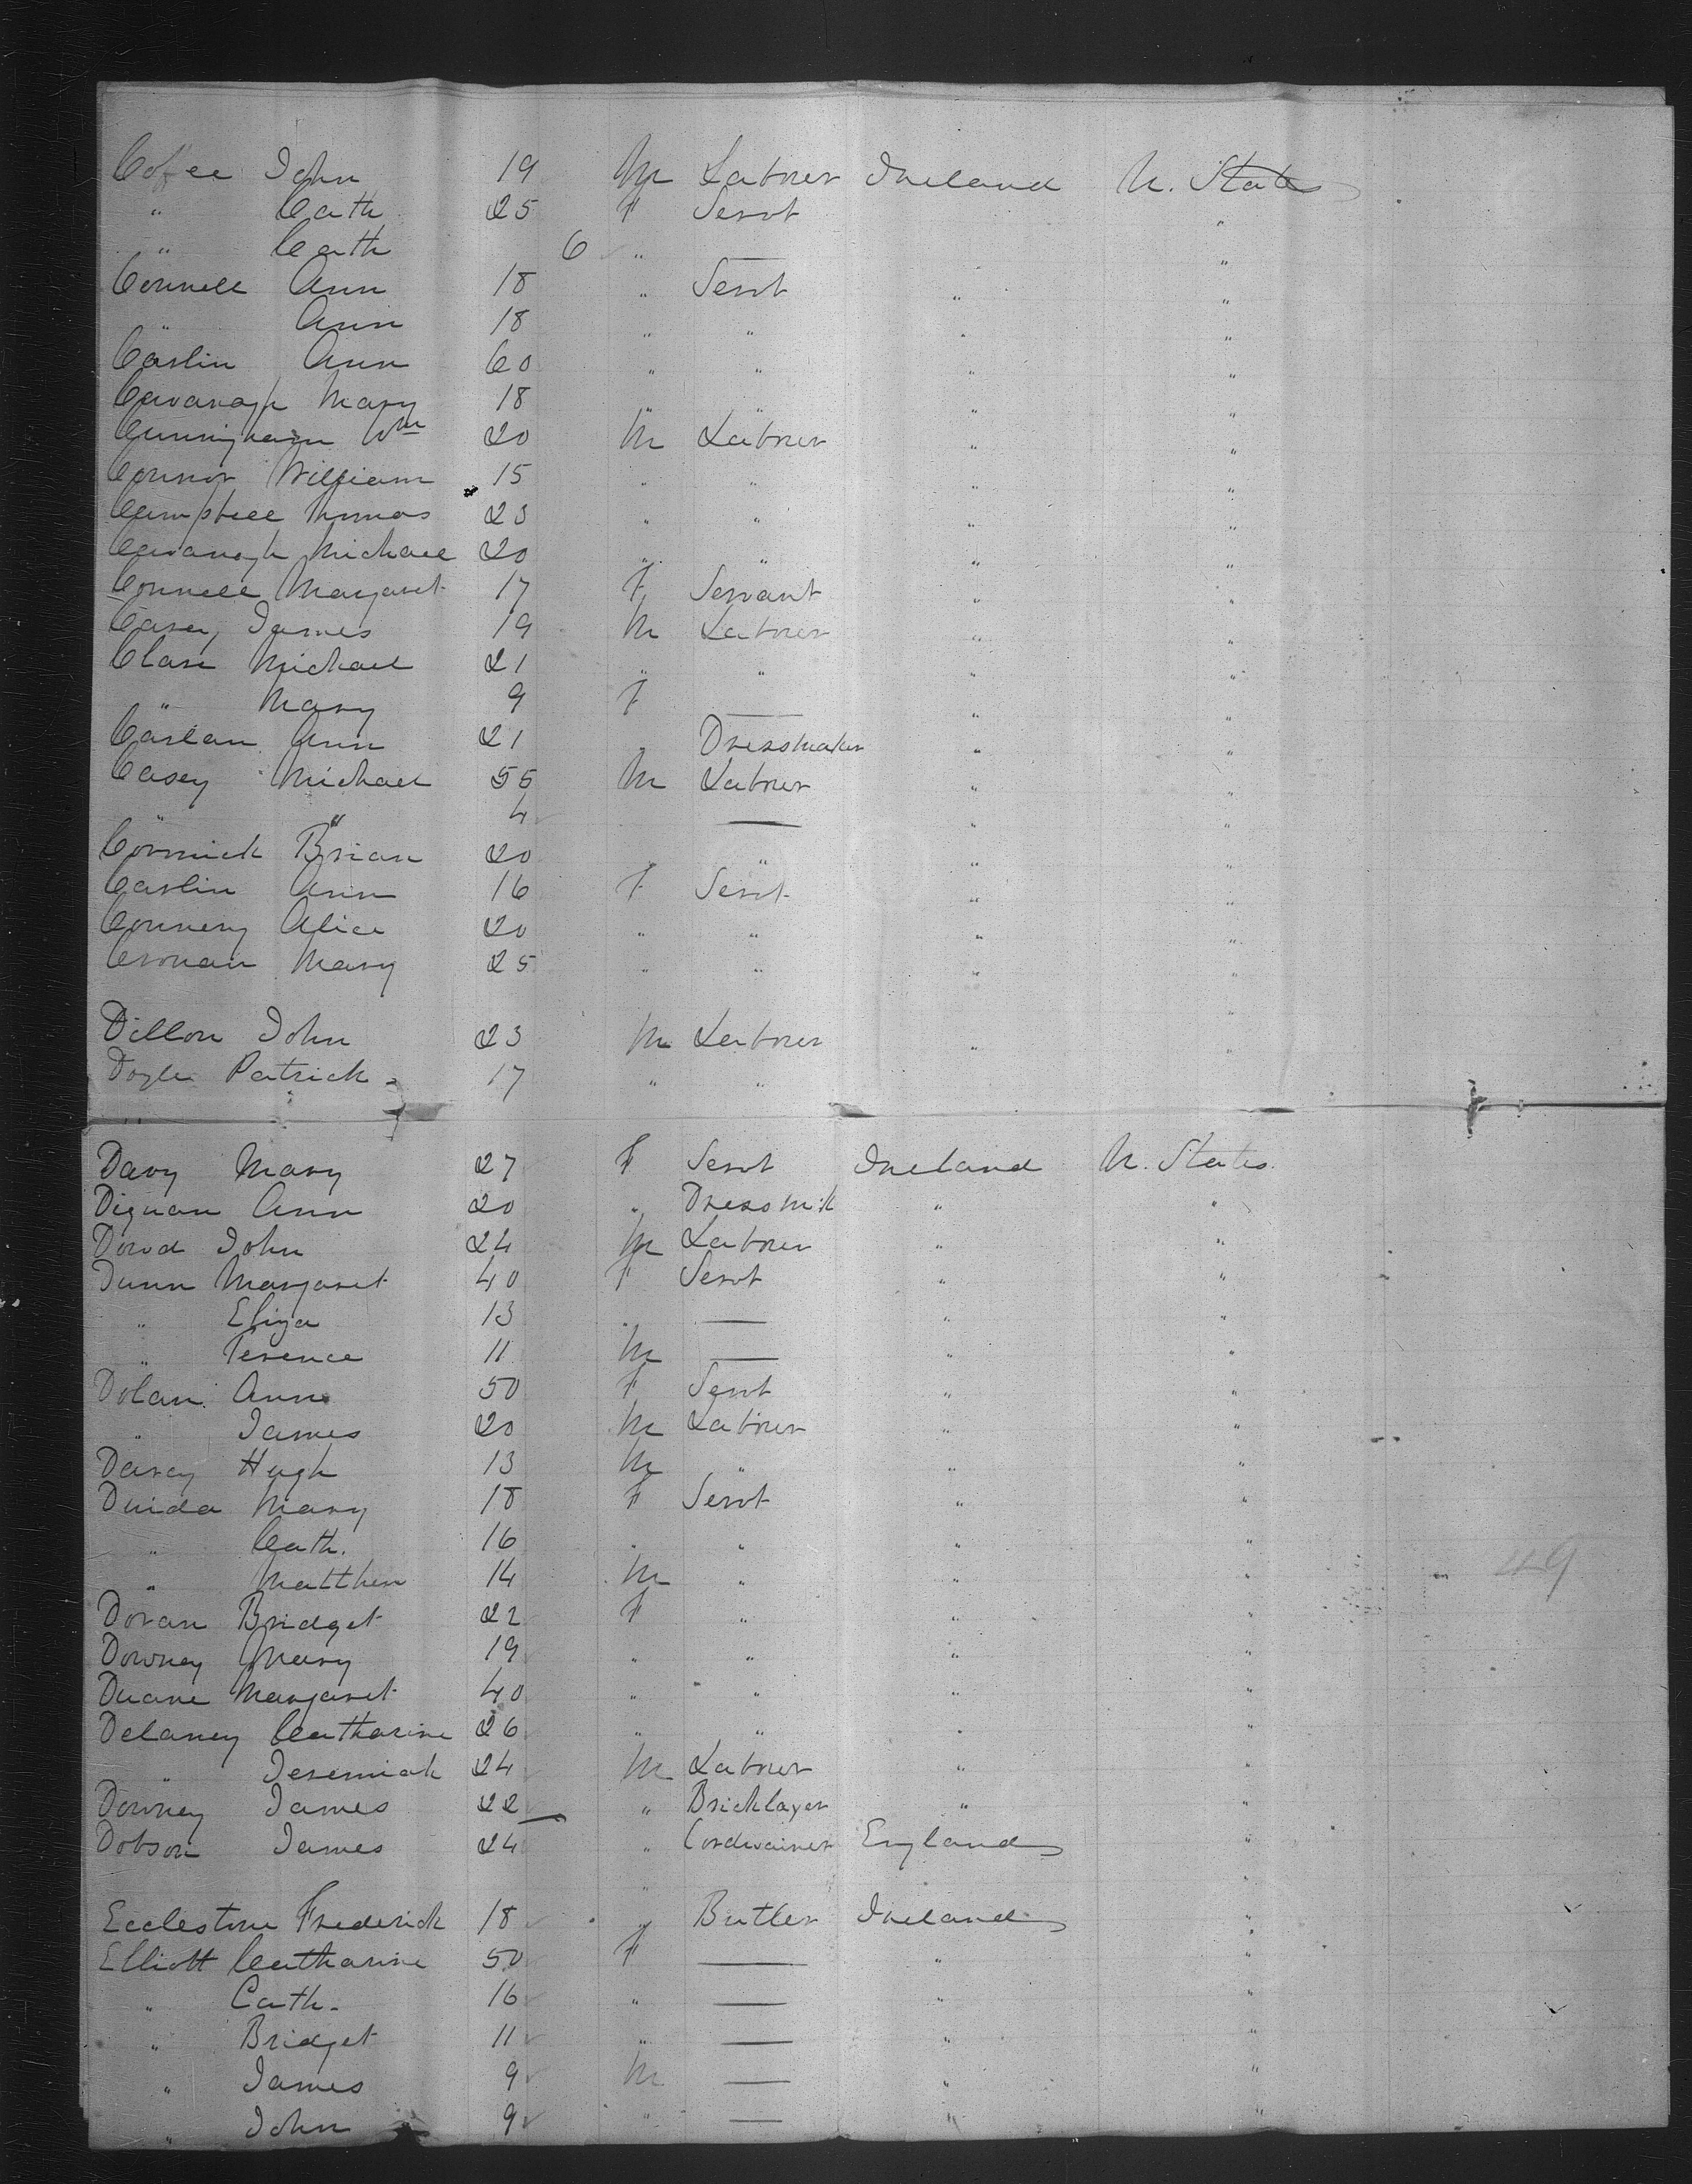 Coffee John 19 M Labrer Ireland U. States
" Cath 25 F Servt "
" Cath 6 " — "
Connell Ann 18 " Servt " "
" Ann 18 " " " "
Carlin Ann 60 " " " "
Cavanagh Mary 18 " " " "
Cunningham Wm 20 M Labrer " "
Connor William 15 " " " "
Campbell Thomas 23 " " " "
Cavanagh Michael 20 " " " "
Connell Margaret 17 F Servant " "
Casey James 19 M Labrer " "
Clare Michael 21 " " " "
" Mary 9 F — " "
Caslan Ann 21 " Dressmaker " "
Casey Michael 55 M Labrer " "
" " 4 — " "
Cormick Brian 20 " " "
Carlin Ann 16 F Servt " "
Connery Alice 20 " " " "
Cronan Mary 25 " " " "
Dillon John 23 M Labrer " "
Doyle Patrick 17 " "
Davy Mary 27 F Servt Ireland U. States
Dignan Ann 20 " Dressmk " "
Dowd John 24 M Labrer " "
Dunn Margaret 40 F Servt " "
" Eliza 13 " — " "
" Terence 11 M — " "
Dolan Ann 50 F Servt " "
" James 20 M Labrer " "
Darcy Hugh 13 M " " "
Duida Mary 18 F Servt " "
" Cath. 16 " " " "
" Matthew 14 M " " "
Doran Bridget 22 F " " "
Downey Mary 19 " " " "
Duane Margaret 40 " " " "
Delaney Catharine 26 " " " "
" Jeremiah 24 M Labrer " "
Downey James 22 " Bricklayer " "
Dobson James 24 " Cordwainer England "
Ecclestone Frederick 18 " Butler Ireland "
Elliott Catharine 50 F — " "
" Cath. 16 " — " "
" Bridget 11 " — " "
" James 9 M — " "
" John 9 " — " "
49